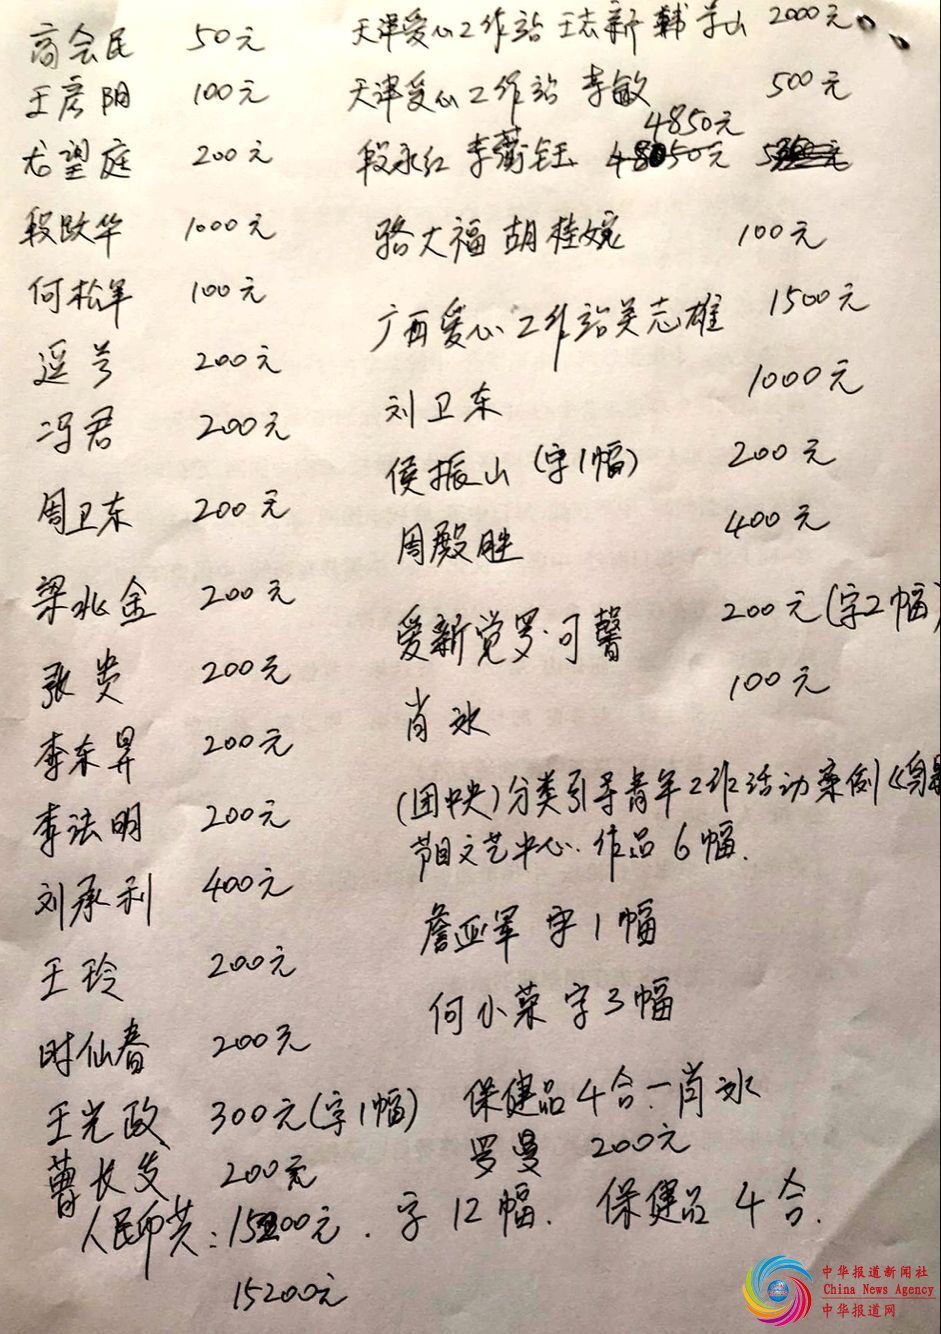 商会民 50元
王彦阳 100元
尤望庭 200元
段跃华 1000元
何松军 100元
遥兮 200元
冯君 200元
周卫东 200元
梁兆金 200元
张贵 200元
李东昇 200元
李法明 200元
刘承利 400元
王玲 200元
时仙春 200元
王光政 300元(字1幅)
曹长安 200元
天津爱心工作站 王志新 韩学山 2000元
天津爱心工作站 李敏 500元
4850元
段永红 李蘅钰
骆大福 胡桂婉 100元
广西爱心工作站关志雄 1500元
刘卫东 1000元
侯振山(字1幅) 200元
周殿胜 400元
爱新觉罗·可馨 200元(字2幅)
肖冰 100元
(团中央)分类引导青年工作活动案例《
节目文艺中心. 作品6幅.
詹亚军 字1幅
何小菜 字3幅
保健品4合.一肖冰
罗曼 200元
人民币共:15200元. 字12幅. 保健品4合.
15200元
中华报道新闻社
China News Agency
中华报道网